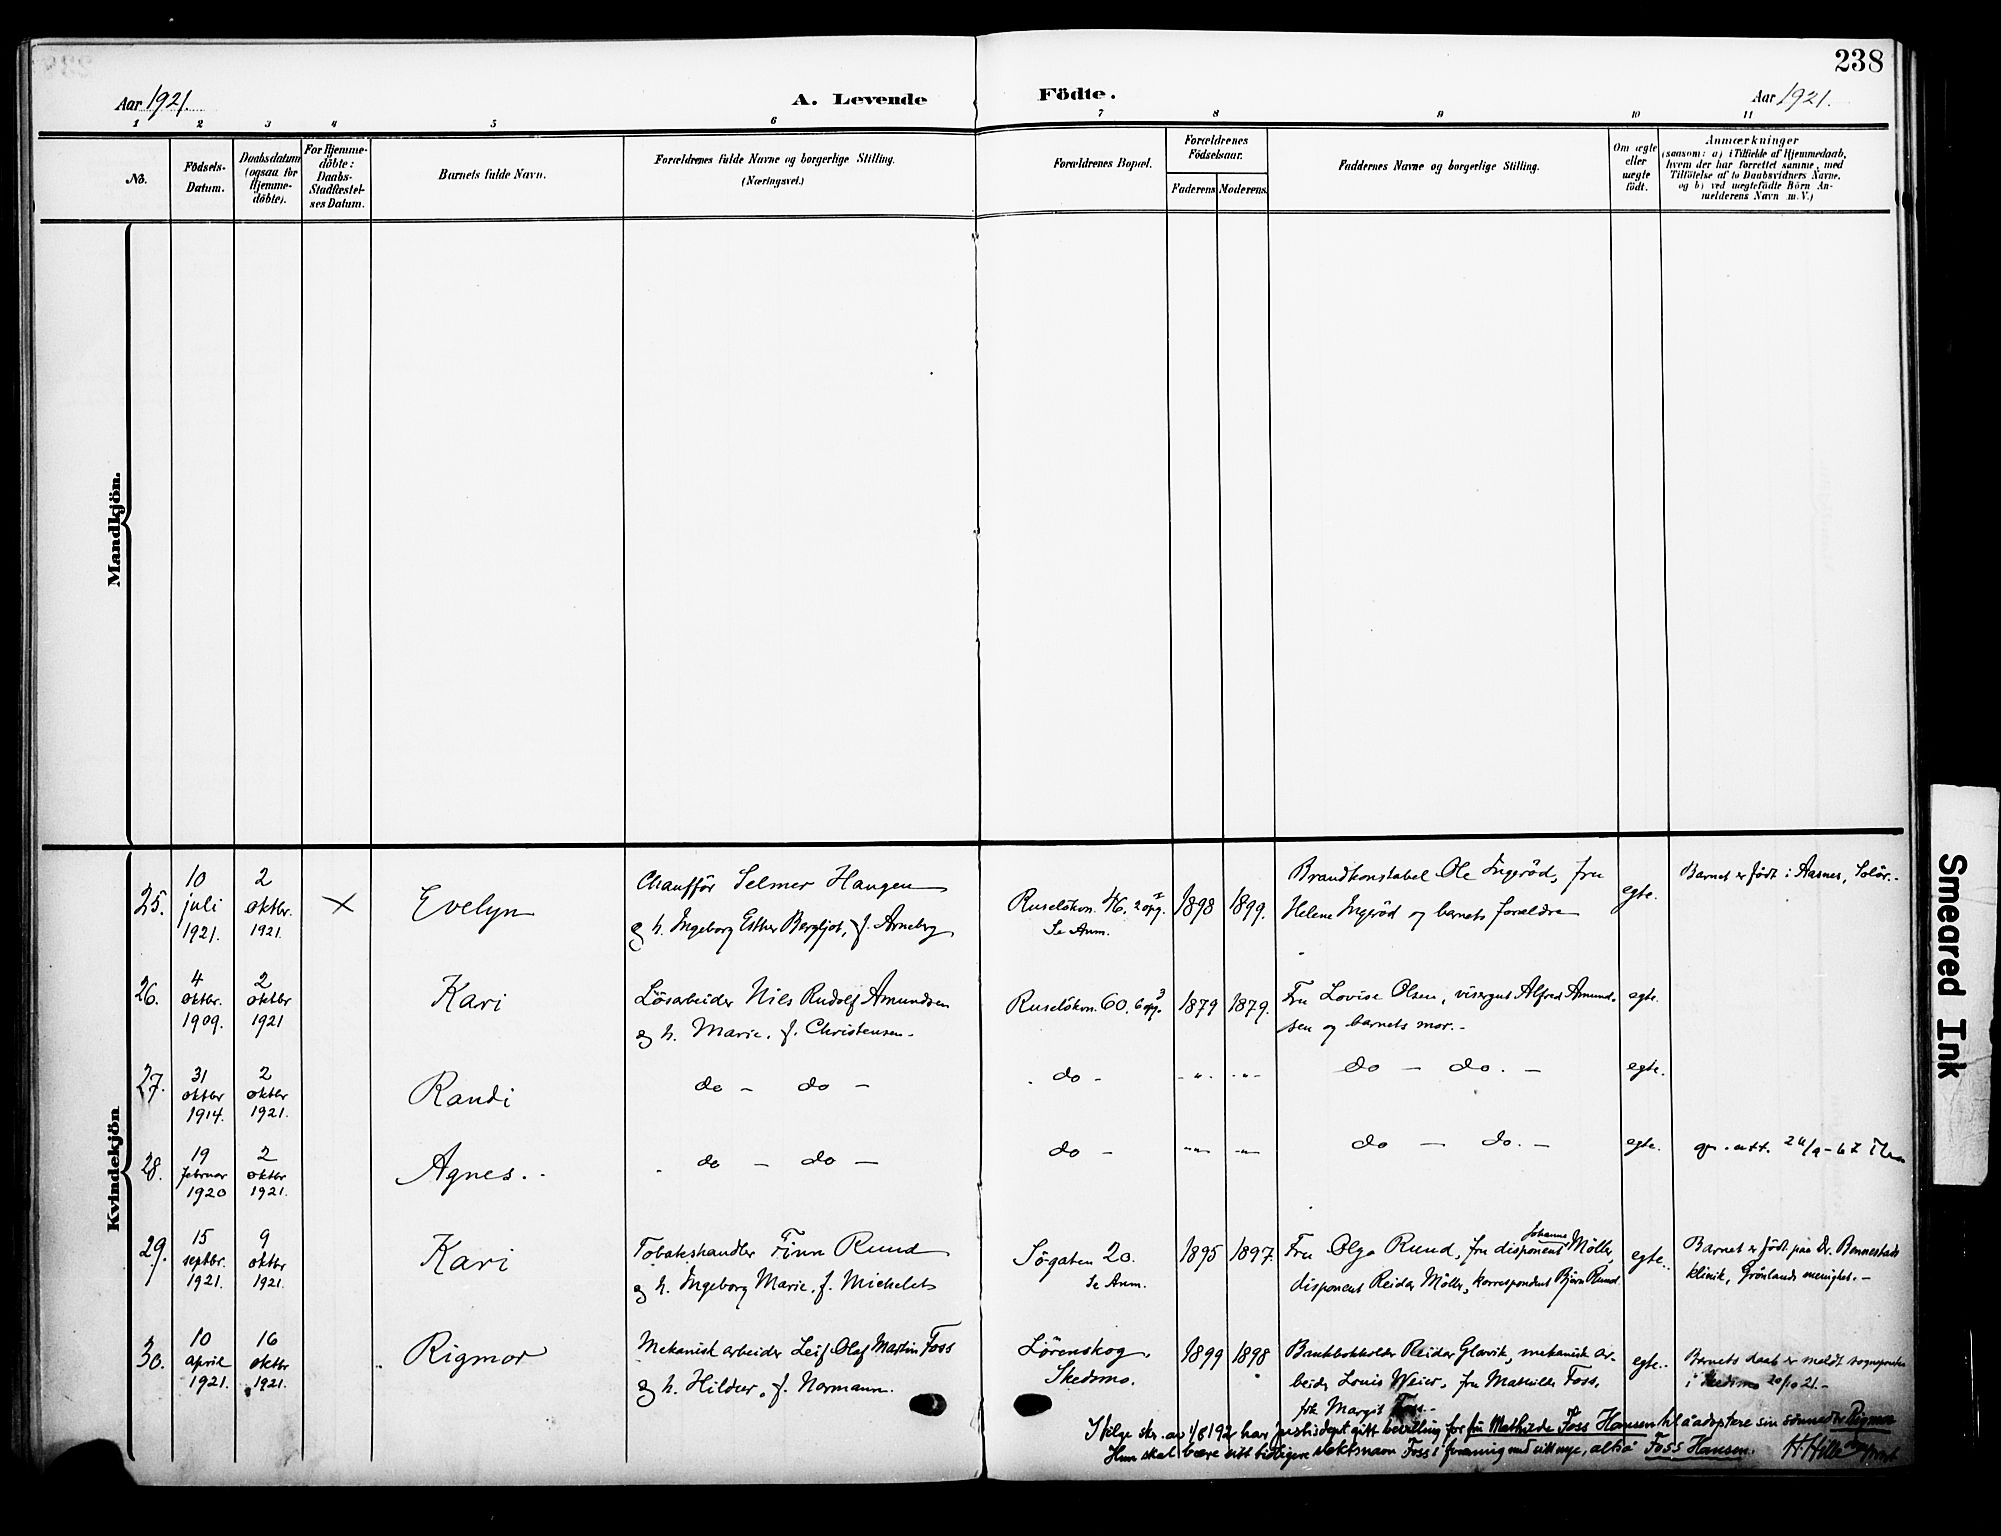 238
Aar 1921.
A. Levende Födte.
Aar 1921.
1 2 3 4 5 6 7 8 9 10 11
No.
Födsels-
Datum.
Daabsdatum
(ogsaa for
Hjemme-
döbte).
For Hjemme-
döbte:
Daabs-
Stadfæstel-
ses Datum.
Barnets fulde Navn.
Forældrenes fulde Navne og borgerlige Stilling.
(Næringsvei.)
Forældrenes Bopæl.
Forældrenes
Födselsaar.
Faderens Moderens.
Faddernes Navne og borgerlige Stilling.
Om ægte
eller
uægte
födt.
Anmærkninger
(saasom: a) i Tilfælde af Hjemmedaab,
hvem der har forrettet samme, med
Tilföielse af to Daabsvidners Navne,
og b) ved uægtefödte Börn An-
melderens Navn m.V.)
Mandkjön.
Kvindekjön
25.
10
juli
1921.
2
oktbr.
1921.
×
Evelyn
Chaufför Selmer Haugen
og h. Ingeborg Esther Bergljot, f. Arneberg
Ruselökvn. 46, 2 opg.
Se Anm.
1898 1899.
Brandkonstabel Ole Ingeröd, fru
Helene Ingeröd og barnets forældre
egte.
Barnet er födt i Aasnes, Solör.
26.
4
oktbr.
1909.
2
oktbr
1921
Kari
Lösarbeider Nils Rudolf Amundsen
og h. Marie, f. Christensen.
Ruselökvn. 60, 6 opg. 3
1879 1879.
Fru Lovise Olsen, visergut Alfred Amund-
sen og barnets mor.
egte.
27.
31
oktbr
1914.
2
oktbr
1921.
Randi
do - do -
do -
- " - - " -
do - do. -
egte.
28.
19
februar
1920
2
oktbr
1921.
Agnes.
do - do -
do -
- " - - " -
do - do. -
egte.
att. 26/9-67
29.
15
septbr.
1921.
9
oktbr
1921.
Kari
Tobakshandler Finn Rund
og h. Ingeborg Marie, f. Michelets
Sögaten 20.
Se Anm.
1895 1897.
Fru Olga Rund, fru disponent Johanne Möller,
disponent Reidar Möller, korrespondent Björn Rund
egte.
Barnet er födt paa Dr. Bennestads
klinik, Grönlands menighet.
30.
10
april
1921.
16
oktbr
1921.
Rigmor
Mekanisk arbeider Leif Olaf Martin Foss
og h. Hildur, f. Normann.
Lörenskog,
Skedsmo.
1899 1898
Bankbokholder Reidar Glavik, mekanisk ar-
beider Louis Weier, fru Mathilde Foss,
frk Margit Foss.
egte.
Barnets daab er meldt sognepresten
i Skedsmo 20/10 21.
Ifölge skr. av 1/8 192 har justisdept gitt bevilling for fru Mathilde Foss Hansen til å adoptere sin sönnedtr Rigmor
Hun skal bære sitt tidligere slektsnavn Foss i forening med sitt nye, altså Foss Hansen. H. Hille
Smeared Ink